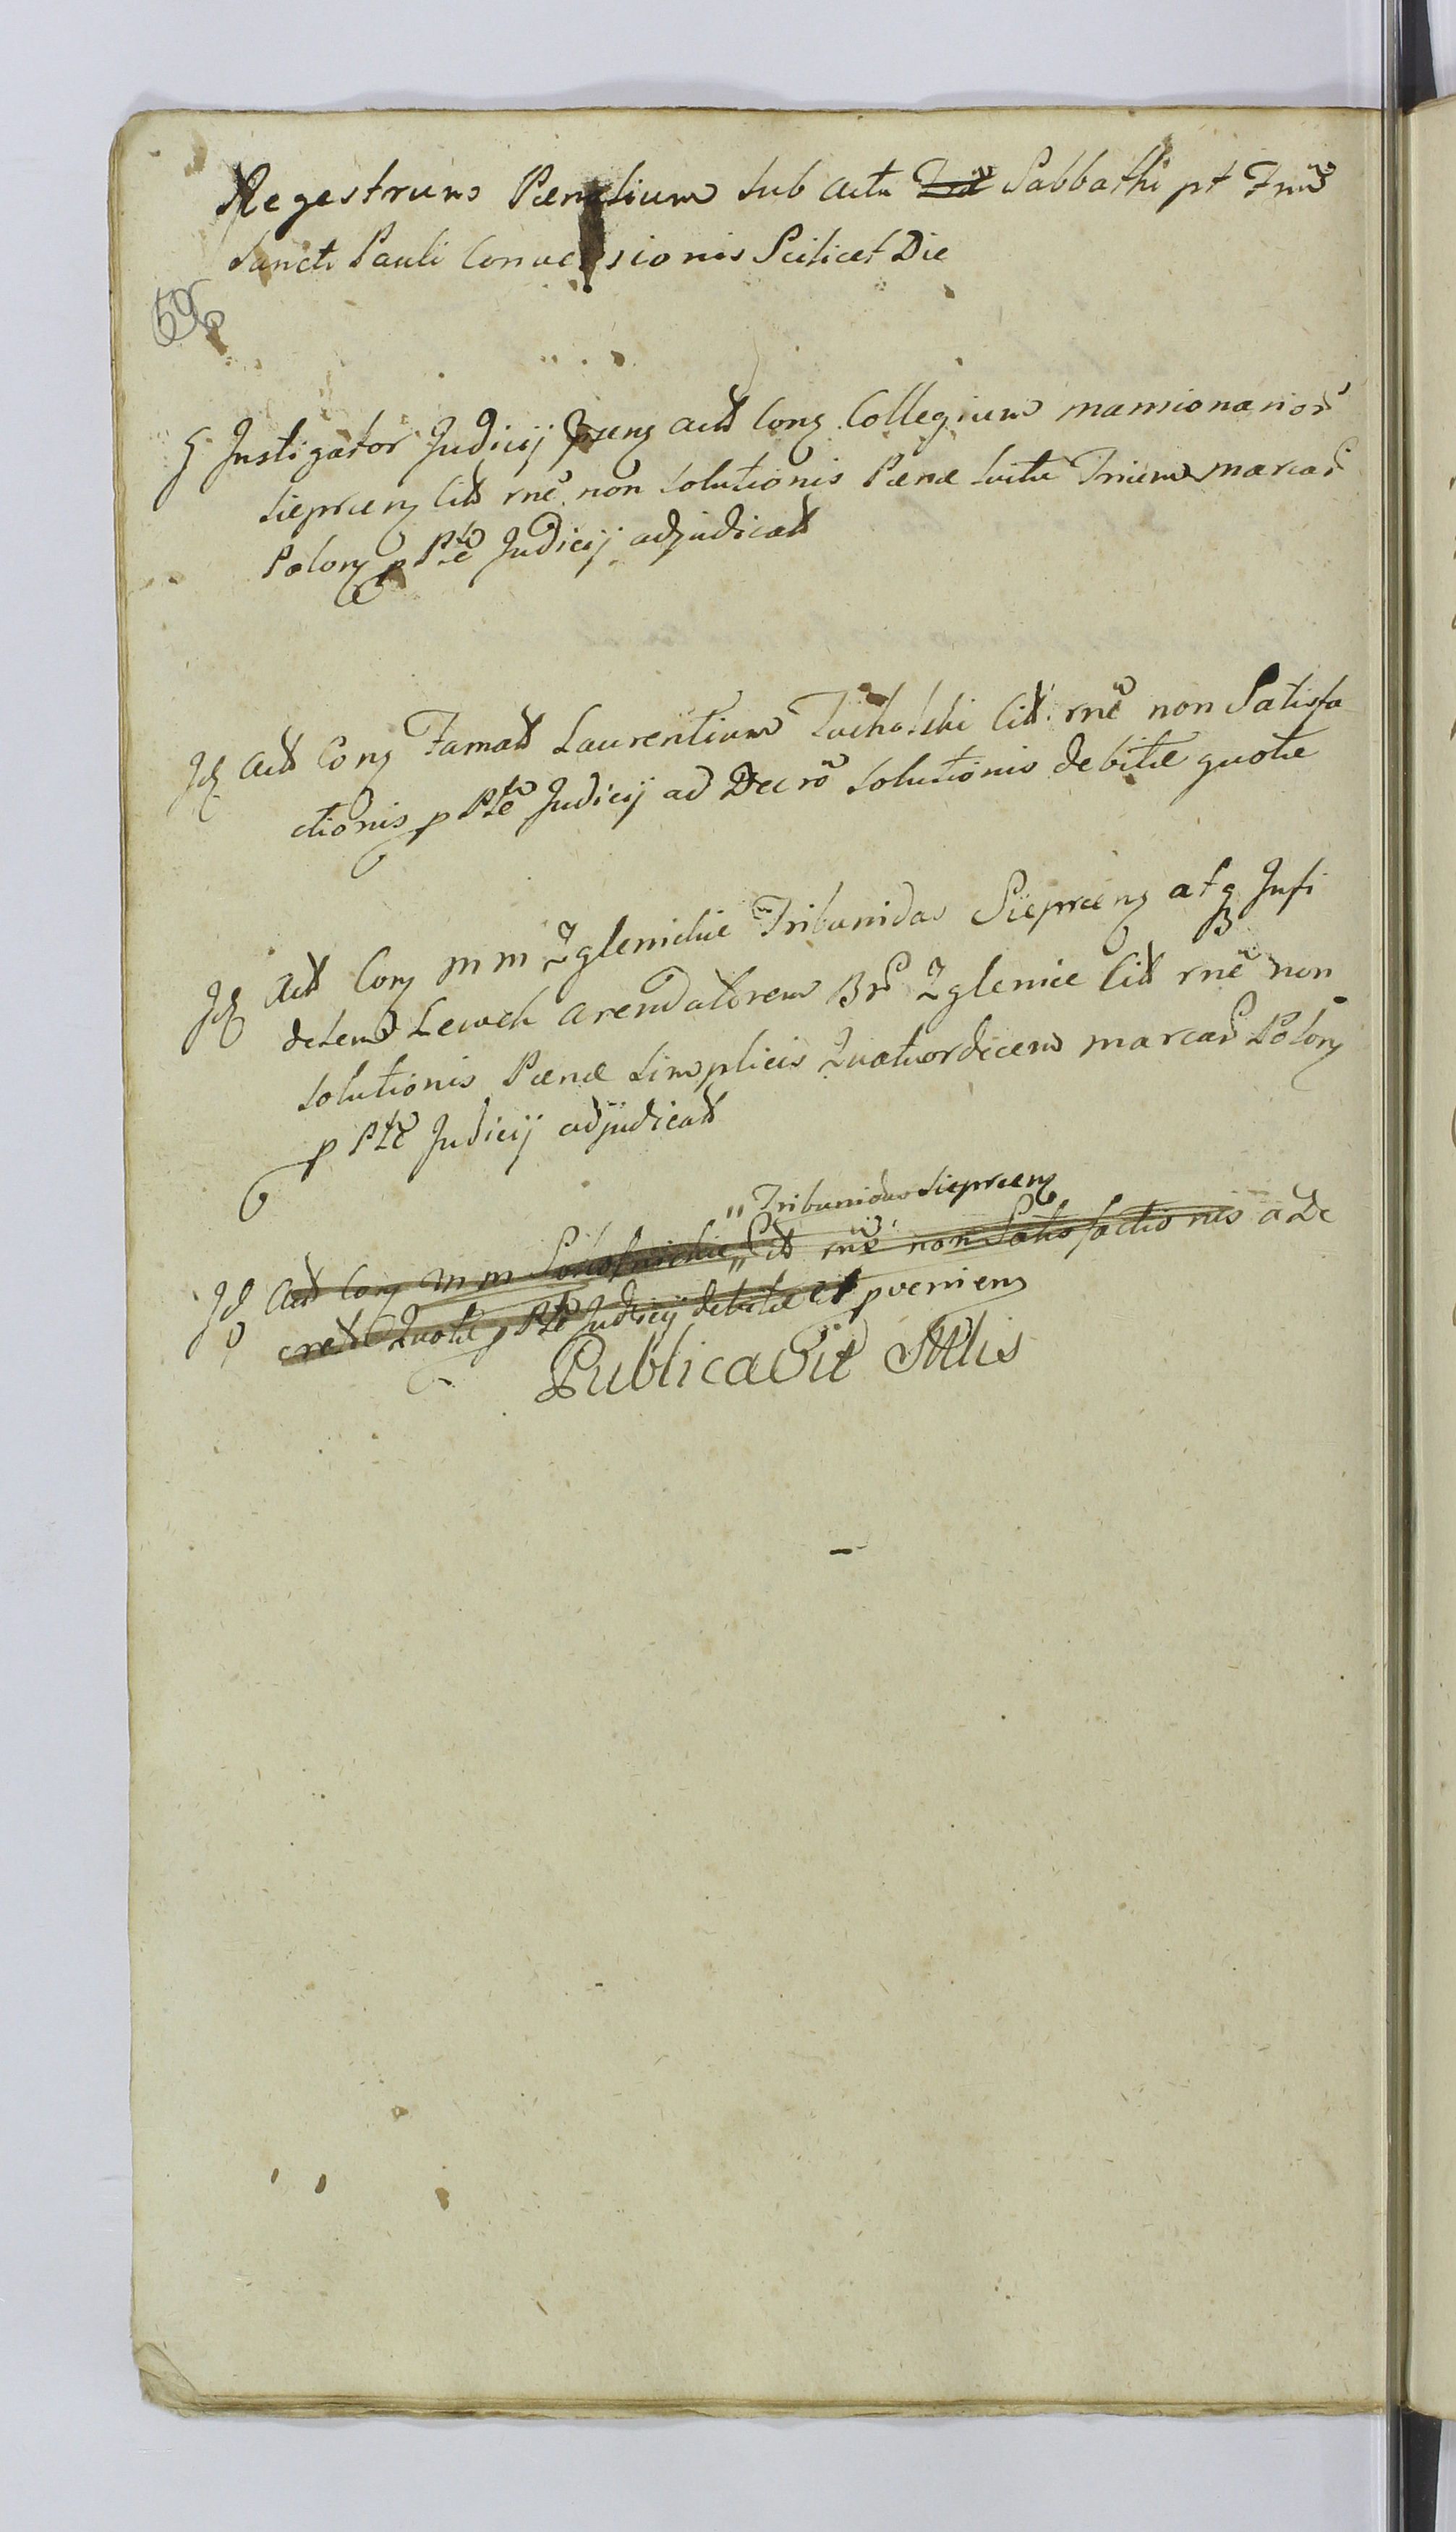 Regestrum Pœnalium sub actu Sabbathi pt Fm̃
Sancti Pauli Conversionis Scilicet Die
Instigator Judicij pñs act Conq Collegium mansionarior
Sieprcens Cit rñe non solutionis Pœnæ luitæ Trium marcar
Polon p Pt̃e Judicij adjudicat
Id act Conq Famat Laurentium Tucholski Cit rñe non Satisfa
ctionis p Pt̃e Judicij ad Decrõ solutionis debitæ quotæ
Id Act Conq MM Zglenickie Tribunidas Sieprcens atq Infi
delem Lewek arendatorem Br Zglenice Cit rñe non
solutionis Pœnæ simplicis Quatuordecem marcar Polon
p Pt̃e Judicij adjudicat
„Tribunidas Sieprcens
Id Act Conq MM „ Cit rñe non Satisfactionis a De
creto Quotæ p Pt̃e Judicij debitæ et pveniens
Publicavit Mlis